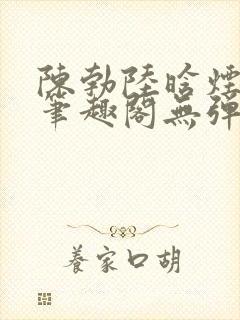 陳勃陸晗煙
筆趣閣無彈
養家口胡